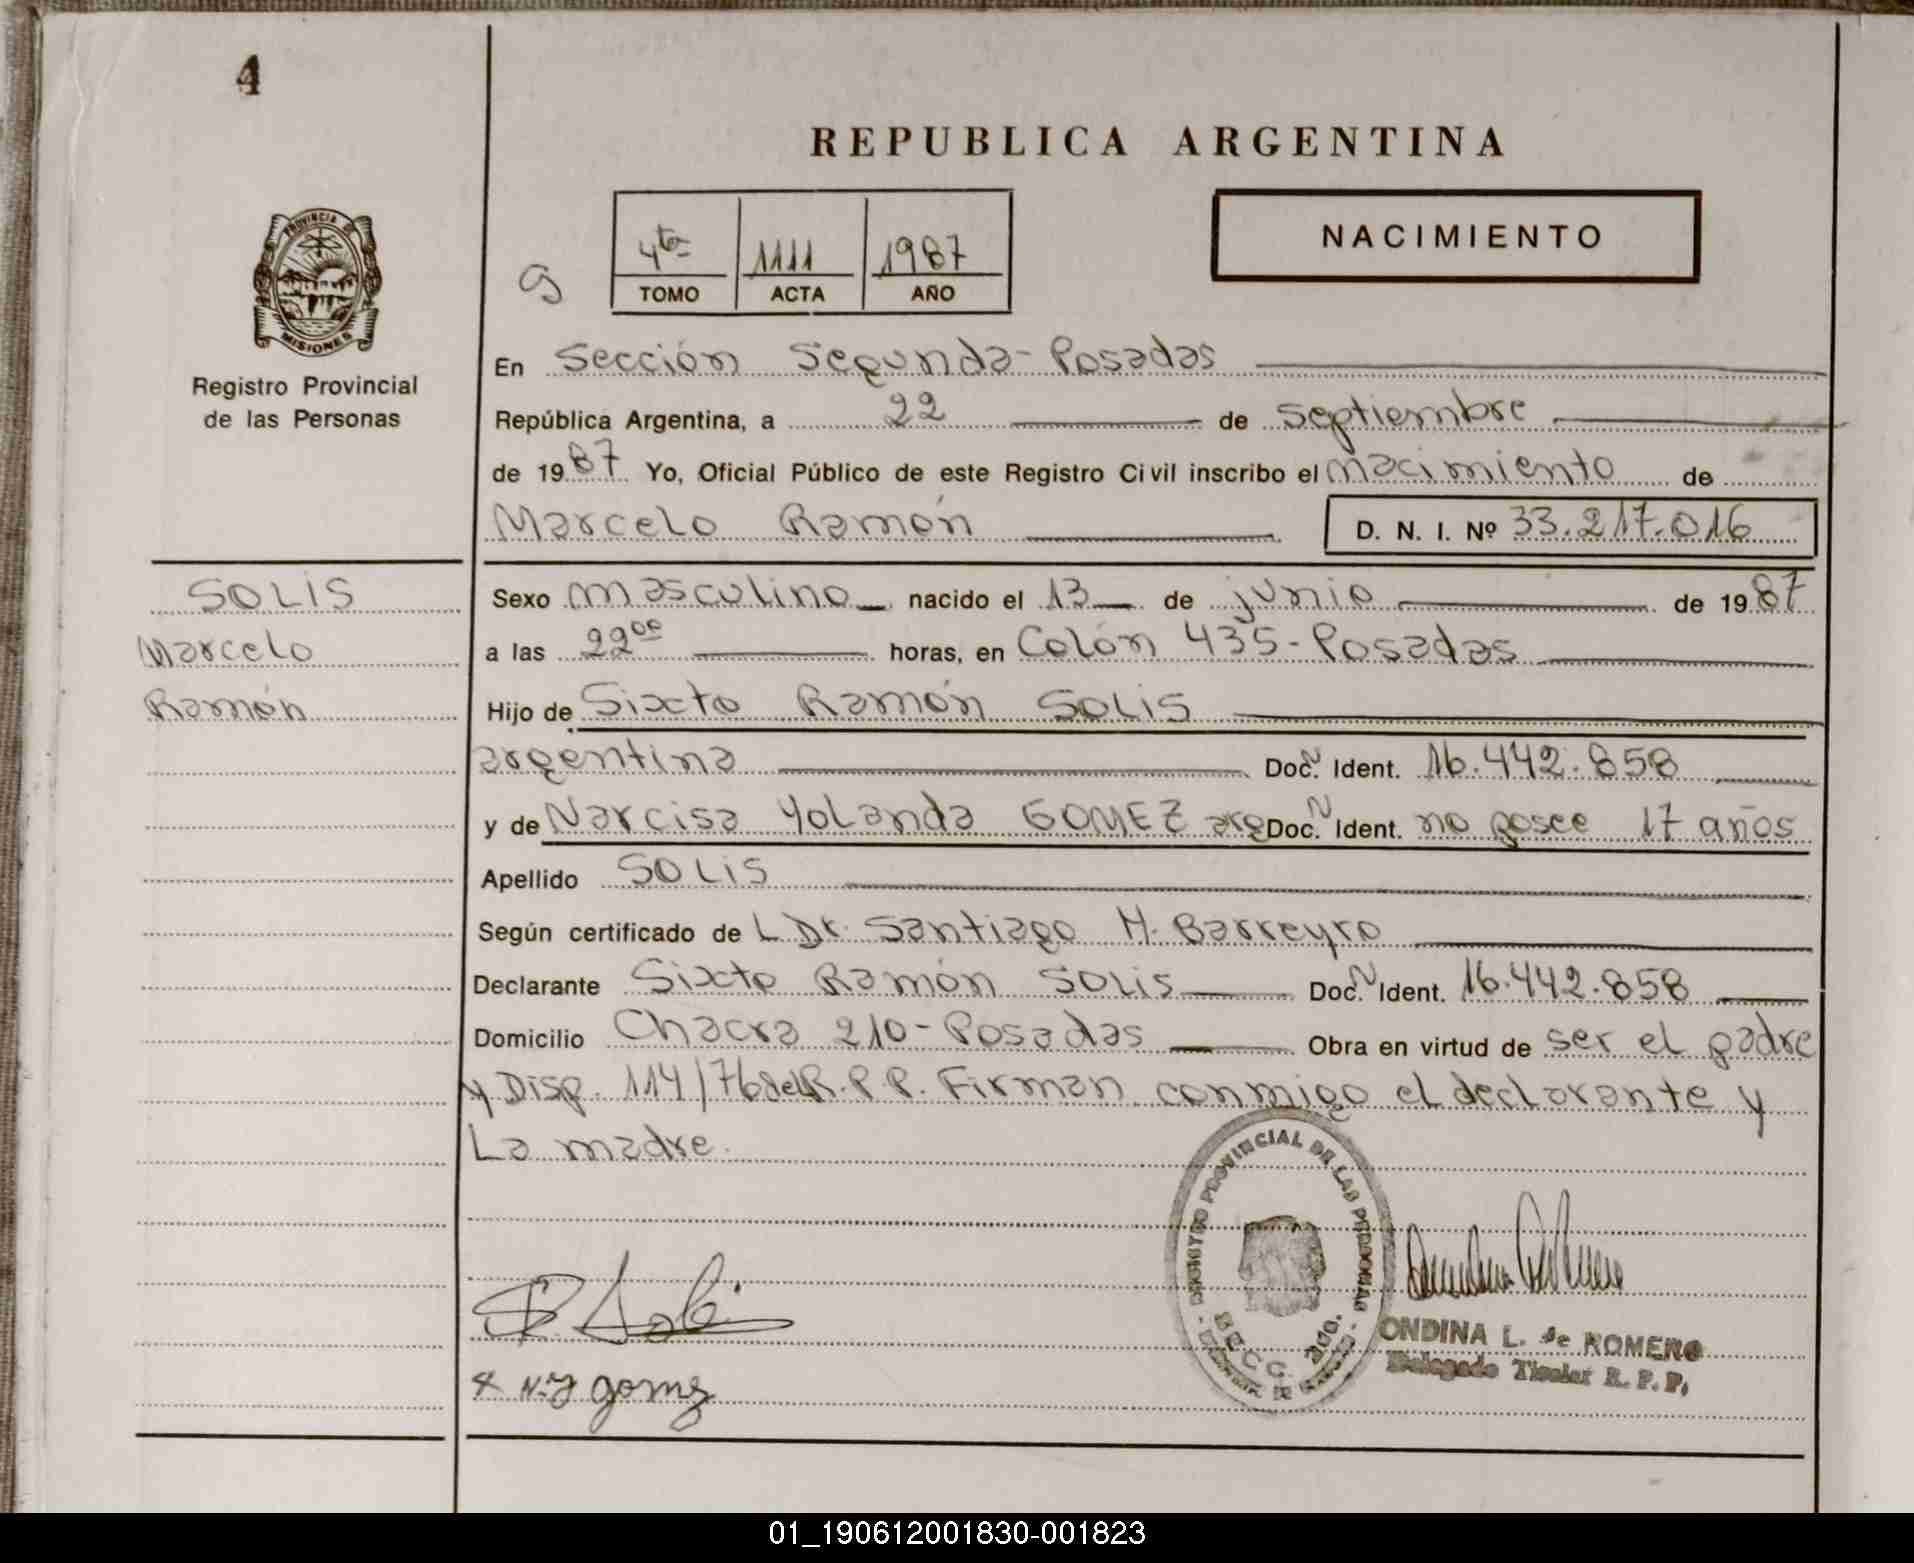 4
REPUBLICA ARGENTINA
PROVINCIA DE
MISIONES
Registro Provincial
de las Personas
4ta 1111 1987
TOMO ACTA AÑO
NACIMIENTO
En Sección Segunda - Posadas
República Argentina, a 22 de septiembre
de 1987 Yo, Oficial Público de este Registro Civil inscribo el nacimiento de
Marcelo Ramón D. N. I. Nº 33.217.016
SOLIS
Marcelo
Ramón
Sexo masculino nacido el 13 de junio de 1987
a las 22oo horas, en Colón 435 - Posadas
Hijo de Sixto Ramón SOLIS
argentina Doc. N Ident. 16.442.858
y de Narcisa Yolanda GOMEZ arg Doc. N Ident. no posee 17 años
Apellido SOLIS
Según certificado de L Dr. Santiago H. Barreyro
Declarante Sixto Ramón SOLIS Doc. N Ident. 16.442.858
Domicilio Chacra 210 - Posadas Obra en virtud de ser el padre
y Disp. 114/76 del R.P.P. Firman conmigo el declarante y
La madre.
REGISTRO PROVINCIAL DE LAS PERSONAS
SECC. 2DA.
R. Solis
N. Y Gomez
ONDINA L. de ROMERO
Delegado Titular R. P. P.
01_190612001830-001823